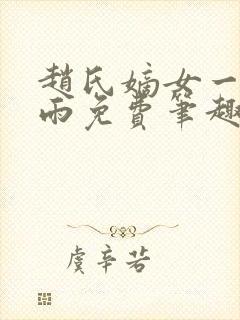 趙氏嫡女一
雨免費筆趣
虞辛苦